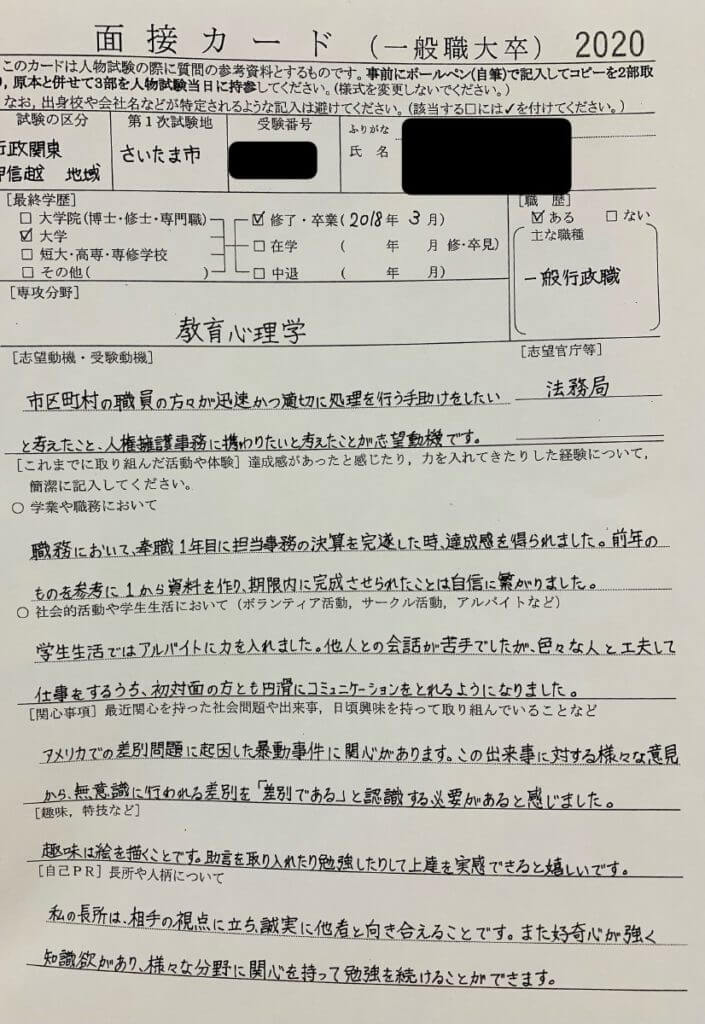 面接カード（一般職大卒） 2020
このカードは人物試験の際に質問の参考資料とするものです。事前にボールペン(自筆)で記入してコピーを2部取
り，原本と併せて3部を人物試験当日に持参してください。(様式を変更しないでください。)
なお，出身校や会社名などが特定されるような記入は避けてください。(該当する□には✓を付けてください。)
試験の区分 第1次試験地 受験番号 ふりがな
行政関東 さいたま市 氏 名
甲信越 地域
［最終学歴］ ［職 歴］
□ 大学院(博士・修士・専門職) ☑ 修了・卒業( 2018 年 3 月) ☑ ある □ ない
☑ 大学 □ 在学 ( 年 月 修・卒見) 主な職種
□ 短大・高専・専修学校 一般行政職
□ その他( ) □ 中退 ( 年 月)
［専攻分野］
教育心理学
［志望動機・受験動機］ ［志望官庁等］
市区町村の職員の方々が迅速かつ適切に処理を行う手助けをしたい 法務局
と考えたこと、人権擁護事務に携わりたいと考えたことが志望動機です。
［これまでに取り組んだ活動や体験］達成感があったと感じたり，力を入れてきたりした経験について，
簡潔に記入してください。
○ 学業や職務において
職務において、奉職1年目に担当事務の決算を完遂した時、達成感を得られました。前年の
ものを参考に1から資料を作り、期限内に完成させられたことは自信に繋がりました。
○ 社会的活動や学生生活において（ボランティア活動，サークル活動，アルバイトなど）
学生生活ではアルバイトに力を入れました。他人との会話が苦手でしたが、色々な人と工夫して
仕事をするうち、初対面の方とも円滑にコミュニケーションをとれるようになりました。
［関心事項］最近関心を持った社会問題や出来事，日頃興味を持って取り組んでいることなど
アメリカでの差別問題に起因した暴動事件に関心があります。この出来事に対する様々な意見
から、無意識に行われる差別を「差別である」と認識する必要があると感じました。
［趣味，特技など］
趣味は絵を描くことです。助言を取り入れたり勉強したりして上達を実感できると嬉しいです。
［自己ＰＲ］長所や人柄について
私の長所は、相手の視点に立ち、誠実に他者と向き合えることです。また好奇心が強く
知識欲があり、様々な分野に関心を持って勉強を続けることができます。